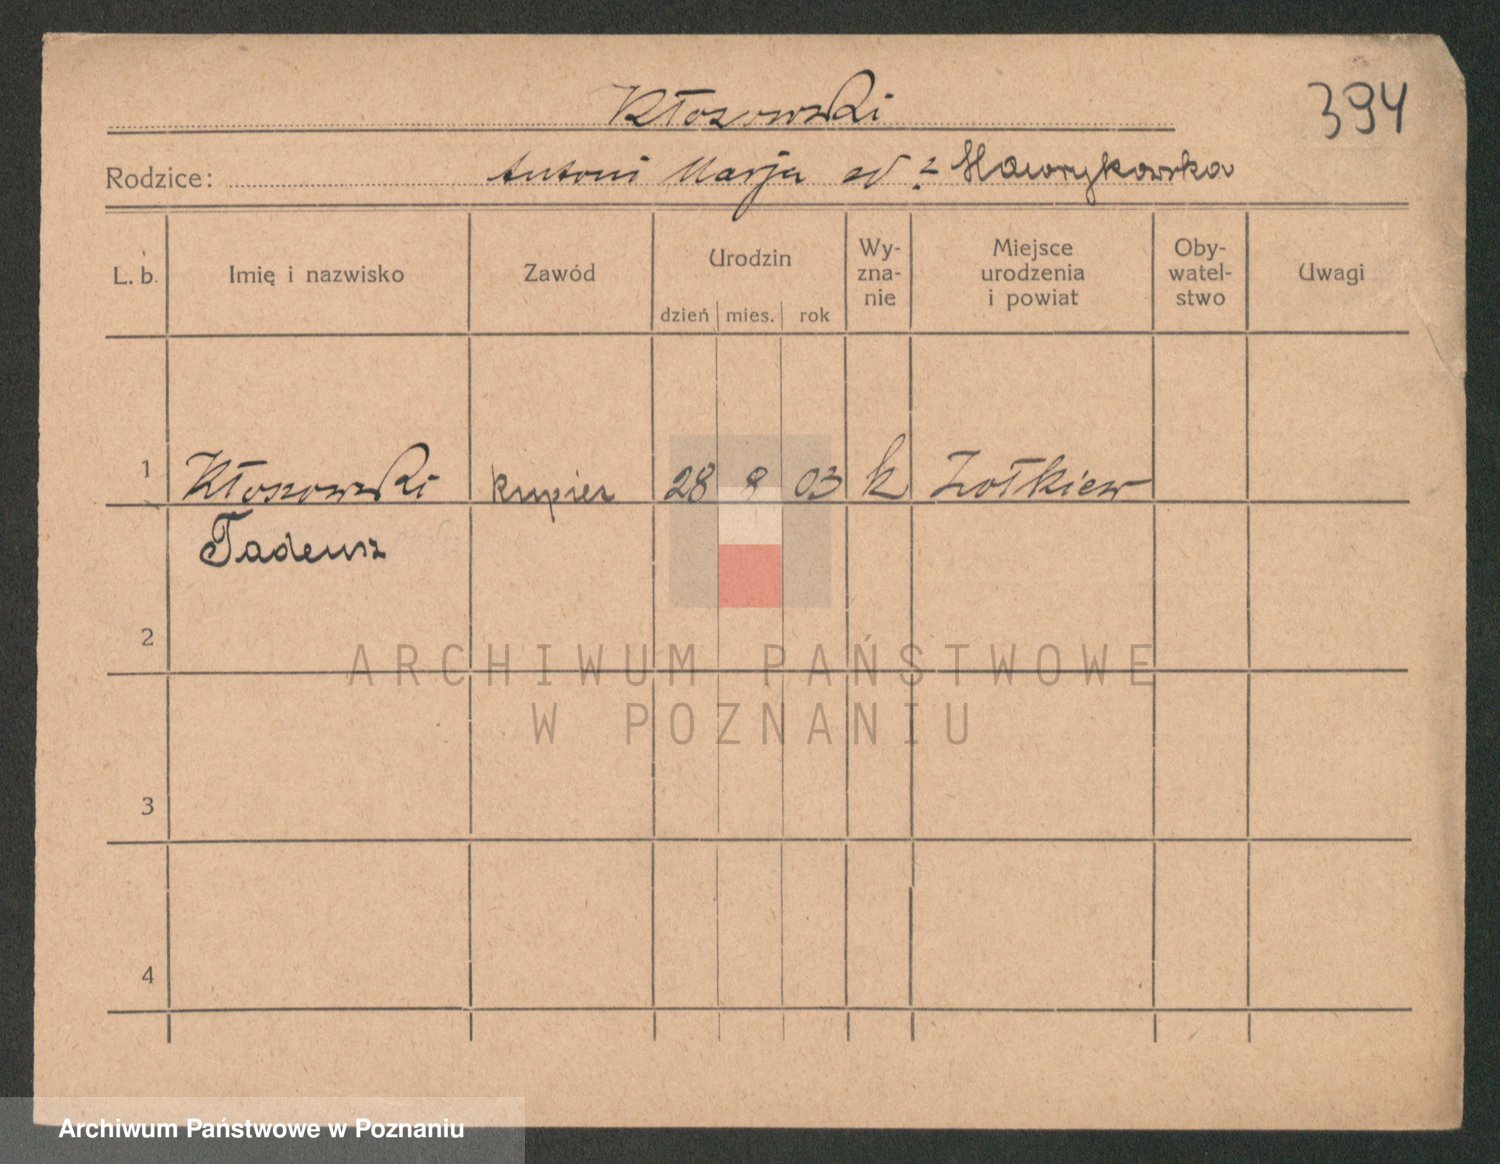 Kłosowski
394
Rodzice: Antoni Marja
L. b. Imię i nazwisko Zawód Urodzin dzień mies. rok Wy-zna-nie Miejsce urodzenia i powiat Oby-watel-stwo Uwagi
1 Kłosowski kupiec 28 8 03 k Żołkiew
Tadeusz
2
ARCHIWUM PAŃSTWOWE
W POZNANIU
3
4
Archiwum Państwowe w Poznaniu